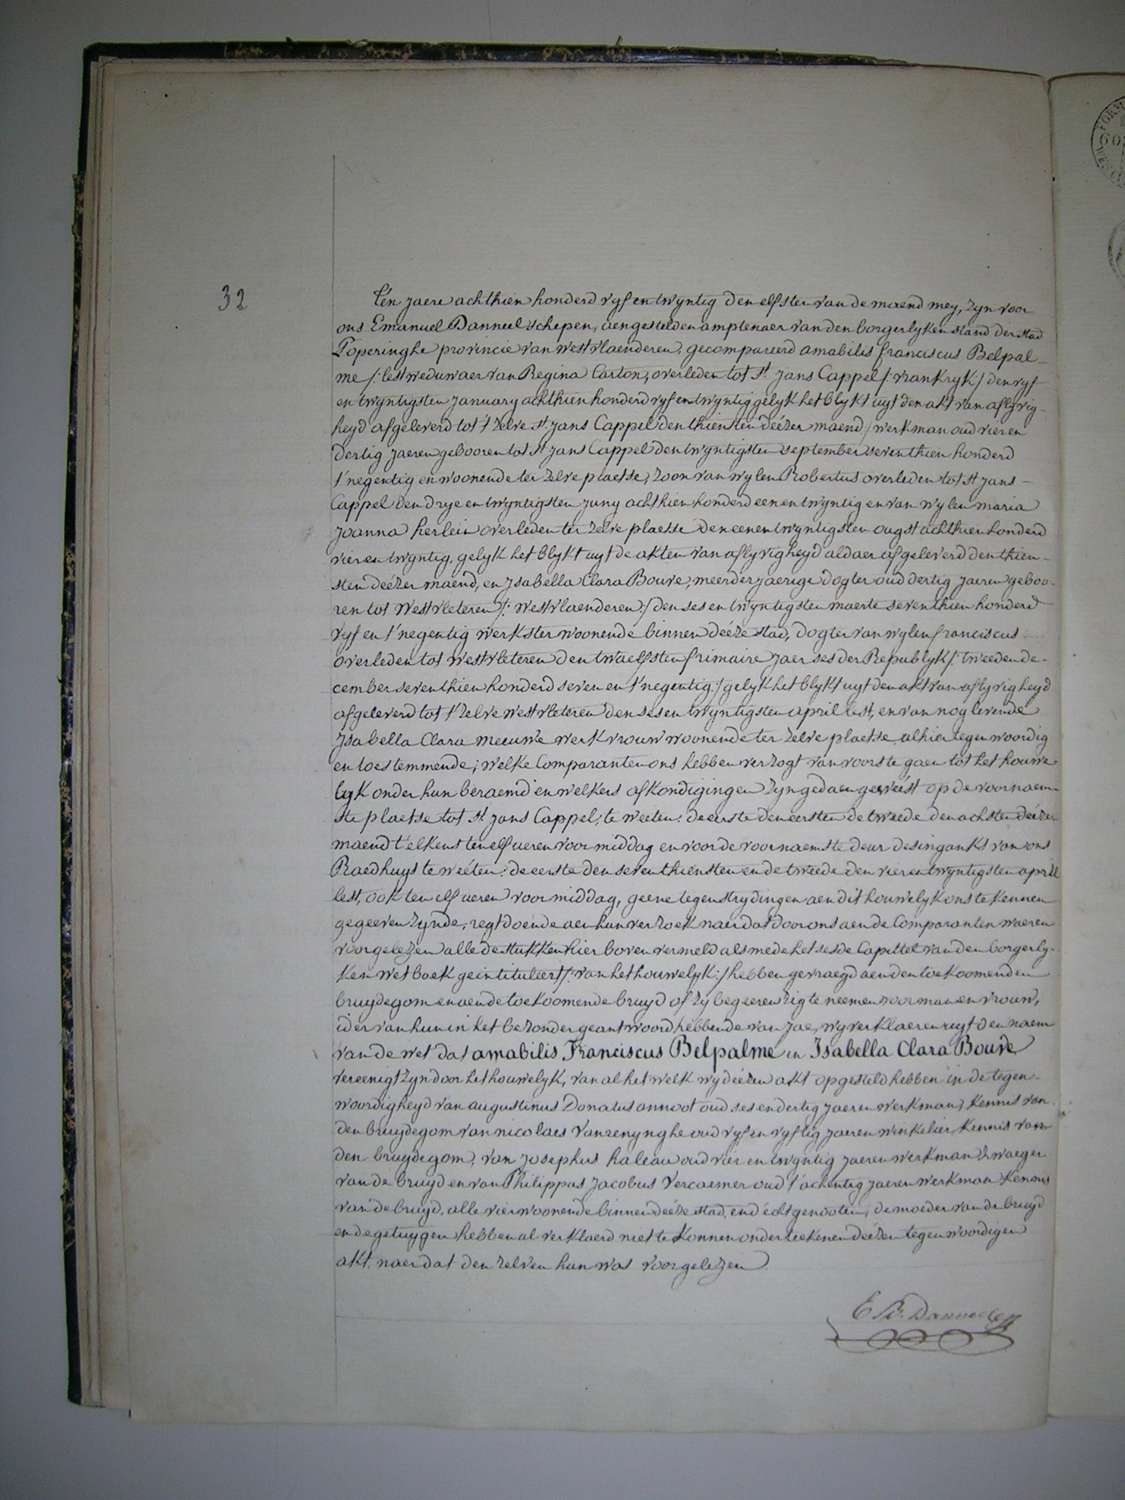 32
Ten jaere achthien honderd vyf en twyntig den elfsten van de maend mey, zyn voor
ons Emanuel Danneel schepen, aengestelden amptenaer van den borgerlyken stand der stad
Poperinghe provincie van westvlaenderen, gecompareerd amabilis franciscus Belpal-
me /: lest weduwaer van Regina Carton, overleden tot St Jans Cappel /: vrankryk :/ den vyf
en twyntigsten january achthien honderd vyf en twyntig gelyk het blykt uyt den akt van aflyvig-
heyd afgeleverd tot t'zelve St Jans Cappel den thiensten deézer maend :/ werkman oud vier en
dertig jaeren gebooren tot St Jans Cappel den twyntigsten september seventhien honderd
t'negentig en woonende ter zelve plaetse, zoon van wylen Robertus overleden tot St Jans-
Cappel den drye en twyntigsten juny achthien honderd een en twyntig en van wylen maria
Joanna herlein overleden ter zelve plaetse den eenentwyntigsten ougst achthien honderd
vier en twyntig, gelyk het blykt uyt de akten van aflyvigheyd aldaer afgeleverd den thien-
sten deézer maend, en Isabella Clara Bouve, meerderjaerige dogter oud dertig jaeren geboo-
ren tot westvleteren /: westvlaenderen :/ den ses en twyntigsten maerte seventhien honderd
vyf en t'negentig werkster woonende binnen deéze stad, dogter van wylen franciscus
overleden tot westvleteren den twaelfsten frimaire jaer ses der Republyk /: tweeden de-
cember seventhien honderd seven en t'negentig :/ gelyk het blykt uyt den akt van aflyvigheyd
afgeleverd tot t'zelve westvleteren den ses en twyntigsten april lest, en van nog levende
Isabella Clara meeuwe werkvrouw woonende ter zelve plaetse alhier tegenwoordig
en toestemmende; welke Comparanten ons hebben verzogt van voorts te gaen tot het houwe
lyk onder hun beraemd en welkers afkondigingen zyn gedaen geweest op de voornaem-
ste plaetse tot St Jans Cappel; te weeten: de eerste den eersten de tweede den achsten deézer
maend t'elkens ten elf ueren voormiddag en voor de voornaemste deur des ingankt van ons
Raedhuys te weéten: de eerste den seventhiensten en de tweede den vier en twyntigsten april
lest, ook ten elf ueren voormiddag, geene tegenstrydingen aen dit houwelyk ons te kennen
gegeeven zynde, regt doende aen hun verzoek naer dat door ons aen de Comparanten waeren
voorgelezen alle de stukken hier boven vermeld als mede het sesde Capittel van den borgerly-
ken wetboek geintituliert /: van het houwelyk :/ hebben gevraegd aen den toekoomenden
bruydegom en aen de toekoomende bruyd of zy begeeren zig te neemen voor man en vrouw,
ider van hun in het bezonder geantwoord hebbende van Jae, wy verklaeren uyt den naem
van de wet dat amabilis Franciscus Belpalme en Isabella Clara Bouve
vereenigt zyn door het houwelyk, van al het welk wy deézen akt opgesteld hebben in de tegen-
woordigheyd van augustinus Donatus annoot oud ses en dertig jaeren werkman, kennis van
den bruydegom van nicolaes Vanrenynghe oud vyf en vyftig jaeren winkelier, kennis van
den bruydegom, van Josephus haleau oud vier en twyntig jaeren werkman zwaeger
van de bruyd en van Philippus Jacobus Vercaemer oud t'achentig jaeren werkman kennis
van de bruyd, alle vier woonende binnen deéze stad, end echtgenooten, de moeder van de bruyd
en de getuygen hebben al verklaerd niet te konnen onderteekenen deézen tegenwoordigen
akt, naer dat den zelven hun was voorgelezen